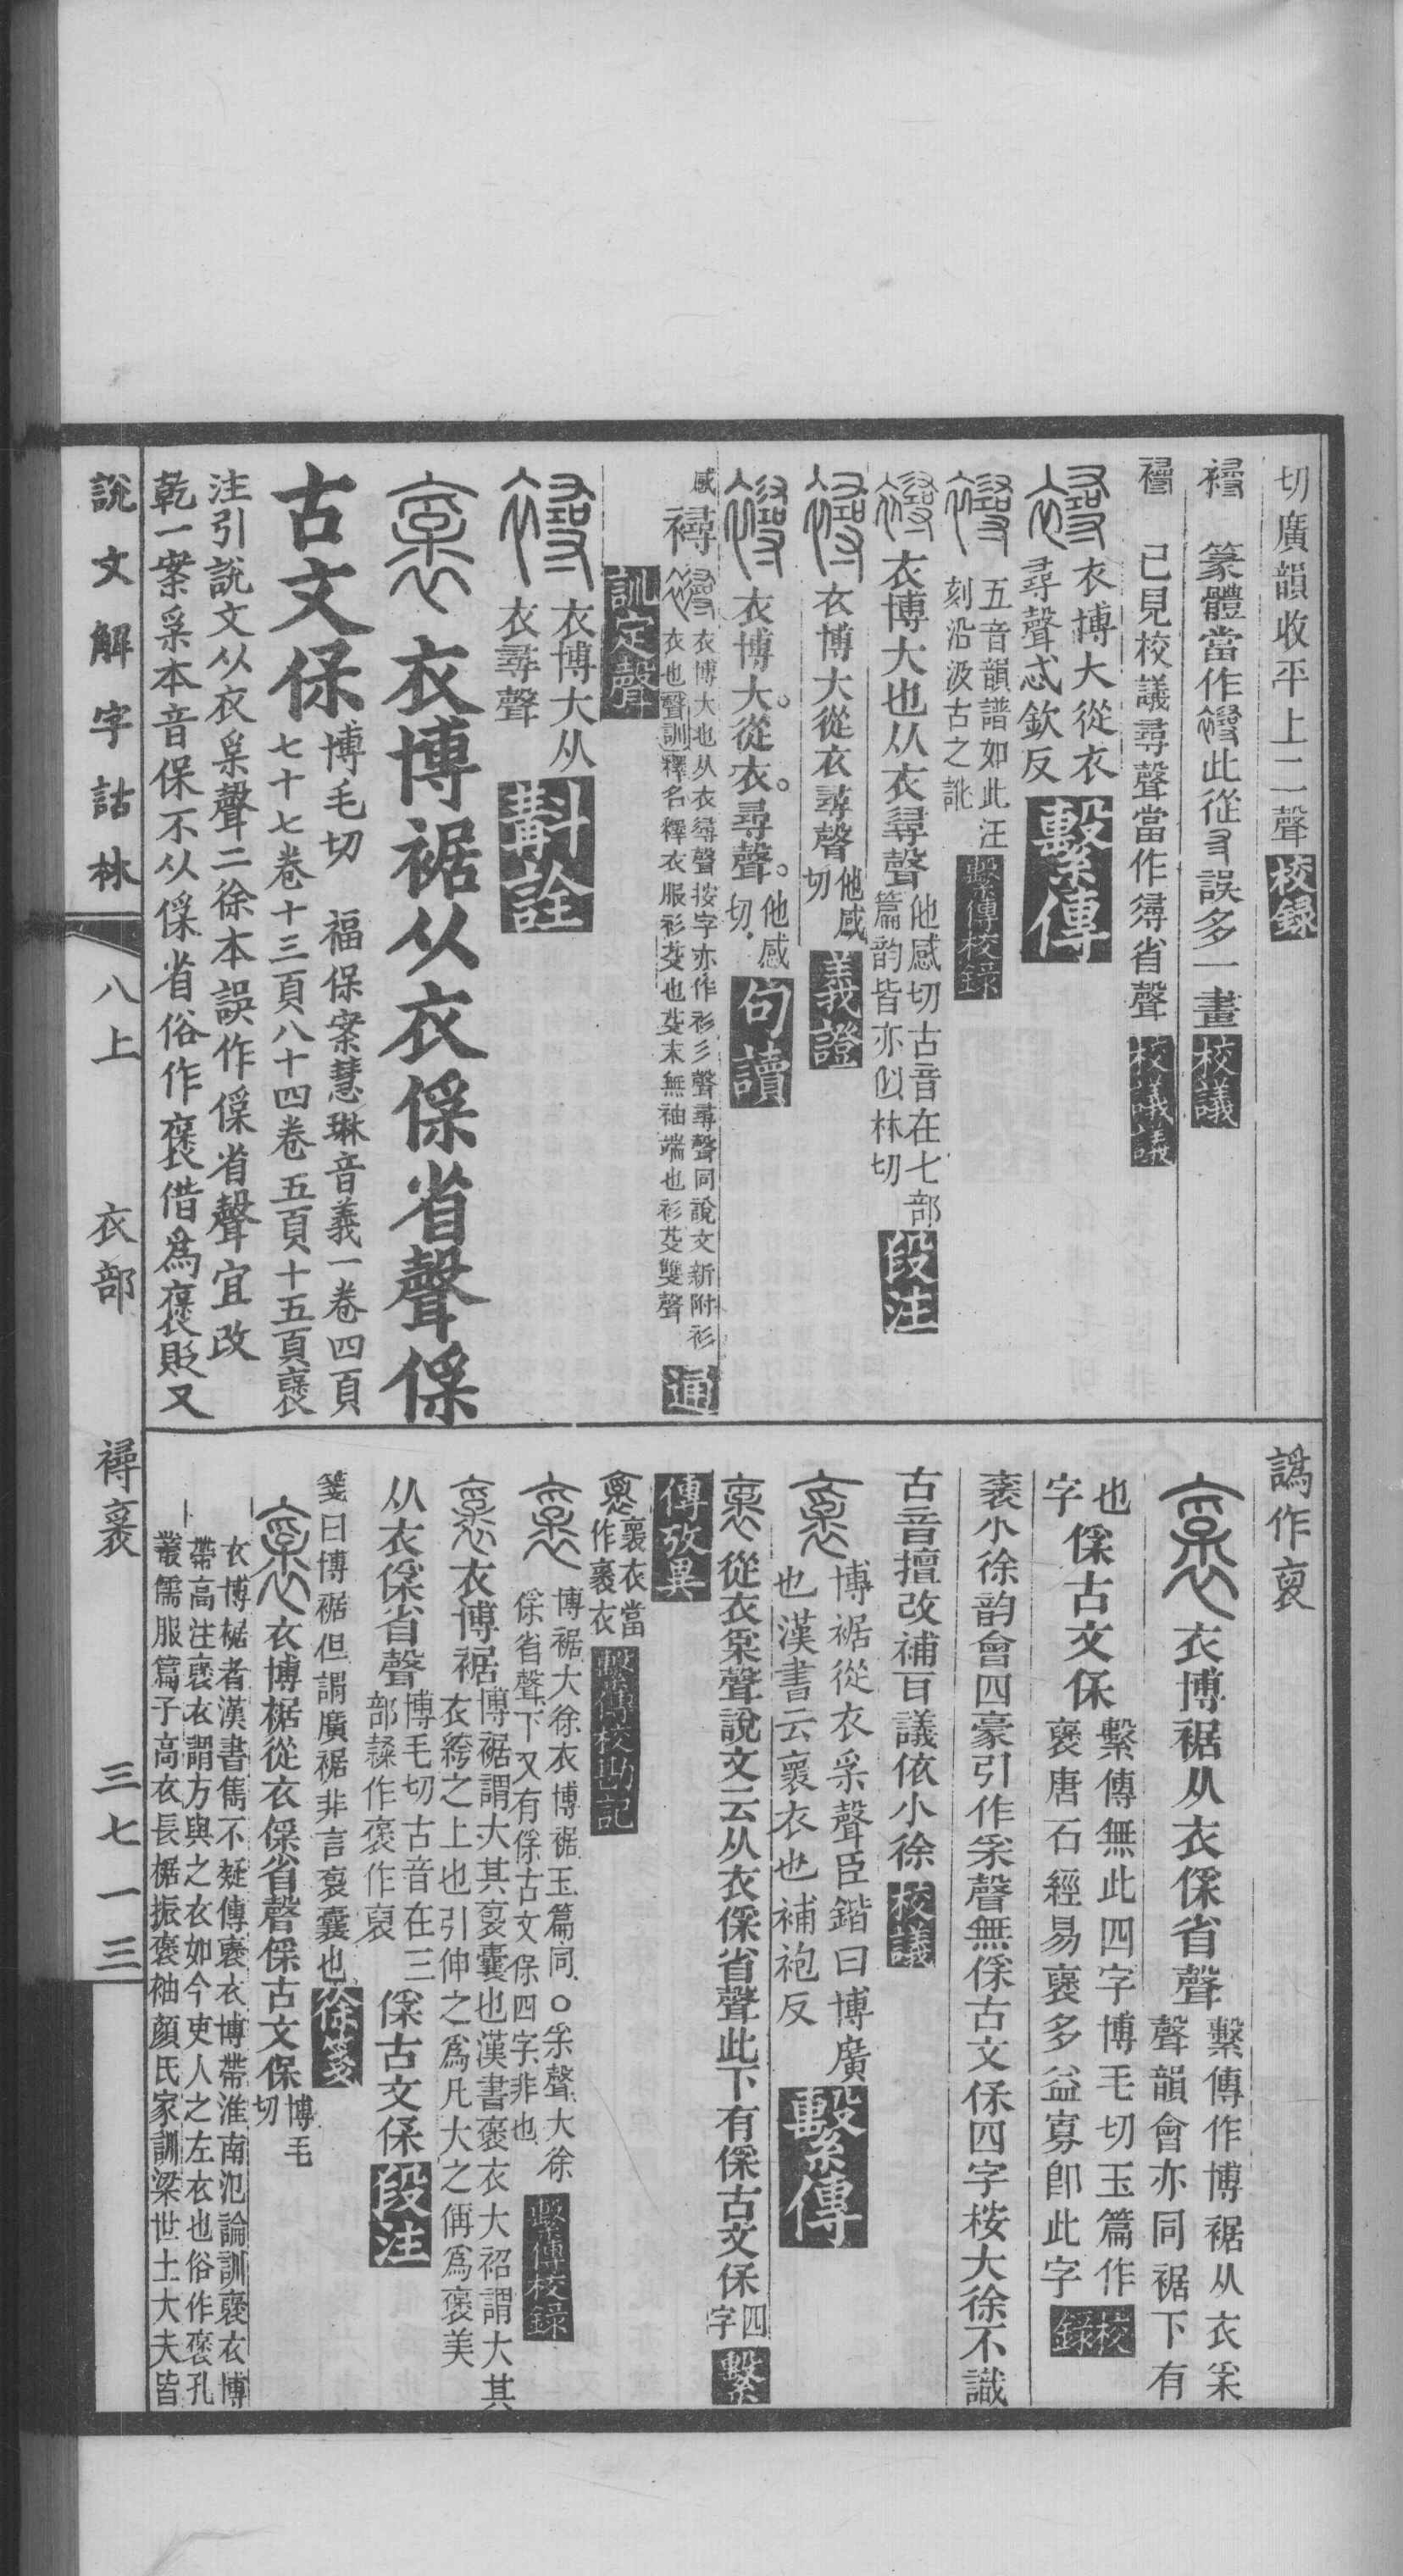 切廣韻收平上二聲校録
襑 篆體當作襑此從寻誤多一畫校議
襑 已見校議尋聲當作㝷省聲校議議
衣博大從衣
尋聲忒欽反繫傳
五音韻譜如此汪
刻沿汲古之訛繫傳校録
衣博大也从衣尋聲他感切古音在七部
篇韵皆亦似林切段注
衣博大從衣尋聲他感
切義證
衣博大。從衣。尋聲。他感
切句讀
感襑衣博大也从衣尋聲按字亦作衫彡聲尋聲同說文新附衫
衣也聲訓釋名釋衣服衫芟也芟末無袖端也衫芟雙聲通
訓定聲
衣博大从
衣尋聲斠詮
衣博裾从衣㑱省聲㑱
古文保博毛切 福保案慧琳音義一卷四頁
七十七卷十三頁八十四卷五頁十五頁襃
注引說文从衣㒭聲二徐本誤作㑱省聲宜改
乾一案㒭本音保不从㑱省俗作褒借爲襃貶又
說文解字詁林
八上
衣部
襑襃
三七一三
譌作裒
衣博裾从衣㑱省聲繫傳作博裾从衣㒭
聲韻會亦同裾下有
也
字㑱古文保繫傳無此四字博毛切玉篇作
襃唐石經易襃多益寡卽此字校録
襃小徐韵會四豪引作㒭聲無㑱古文保四字桉大徐不識
古音擅改補百議依小徐校議
博裾從衣㒭聲臣鍇曰博廣
也漢書云襃衣也補袍反繫傳
從衣㒭聲說文云从衣㑱省聲此下有㑱古文保四
字繫
傳攷異
襃衣當
作襃衣繫傳校勘記
博裾大徐衣博裾玉篇同○㒭聲大徐
㑱省聲下又有㑱古文保四字非也繫傳校録
衣博裾博裾謂大其裒囊也漢書褒衣大袑謂大其
衣絝之上也引伸之爲凡大之偁爲褒美
从衣㑱省聲博毛切古音在三
部隸作褒作裒㑱古文保段注
箋曰博裾但謂廣裾非言裒囊也徐箋
衣博椐從衣㑱省聲㑱古文保博毛
切
衣博椐者漢書雋不疑傳襃衣博帶淮南氾論訓襃衣博
帶高注襃衣謂方與之衣如今吏人之左衣也俗作褒孔
叢儒服篇子高衣長椐振褒袖顏氏家訓梁世士大夫皆